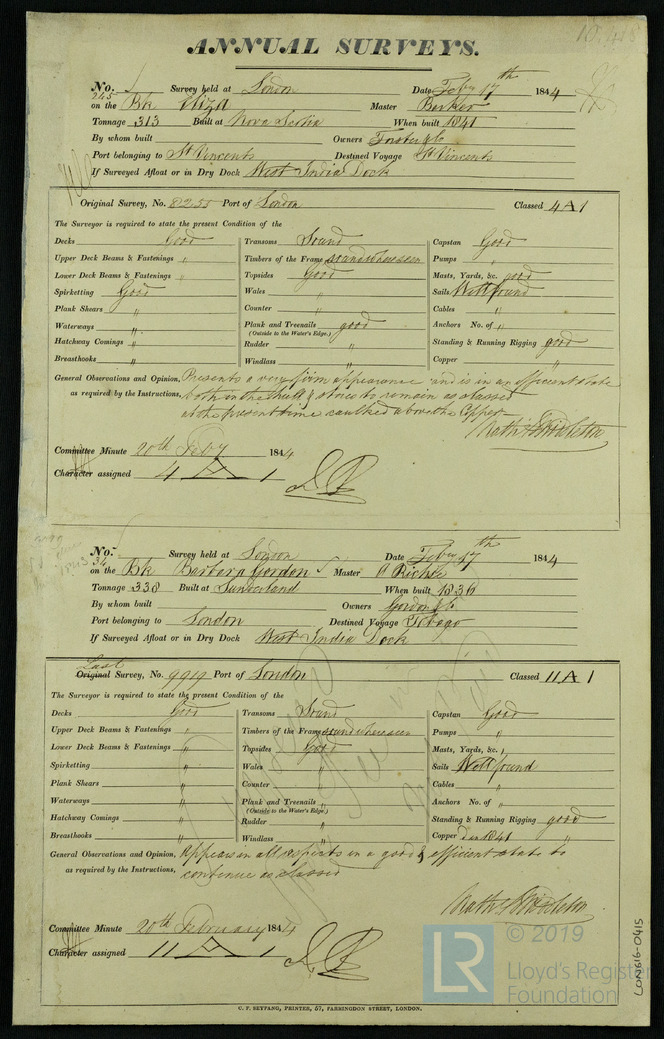 ANNUAL SURVEYS.
No. 245 Survey held at London Date Feby 17th 1844
on the Bk Eliza Master Barker
Tonnage 313 Built at Nova Scotia When built 1841
By whom built Owners Forster & Co
Port belonging to St Vincents Destined Voyage St Vincents
If Surveyed Afloat or in Dry Dock West India Dock
Original Survey, No. 8255 Port of London Classed 4 A 1
The Surveyor is required to state the present Condition of the
Decks Good Transoms Sound Capstan Good
Upper Deck Beams & Fastenings " Timbers of the Frame sound where seen Pumps "
Lower Deck Beams & Fastenings " Topsides Good Masts, Yards, &c. good
Spirketting Good Wales " Sails Well found
Plank Shears " Counter " Cables "
Waterways " Plank and Treenails good Anchors No. of "
(Outside to the Water's Edge.)
Hatchway Comings " Rudder " Standing & Running Rigging good
Breasthooks " Windlass " Copper "
General Observations and Opinion, Presents a very firm appearance and is in an efficient state
as required by the Instructions, both in the hull & stores to remain as classed
at the present time caulked above the Copper
Nathl Middleton
Committee Minute 20th Feby 1844
Character assigned 4 A 1
No. 34 Survey held at London Date Feby 17th 1844
on the Bk Barbara Gordon Master A Richie
Tonnage 338 Built at Sunderland When built 1836
By whom built Owners Gordon & Co
Port belonging to London Destined Voyage Tobago
If Surveyed Afloat or in Dry Dock West India Dock
Last
Original Survey, No. 9919 Port of London Classed 11 A 1
The Surveyor is required to state the present Condition of the
Decks Good Transoms Sound Capstan Good
Upper Deck Beams & Fastenings " Timbers of the Frame sound where seen Pumps "
Lower Deck Beams & Fastenings " Topsides Good Masts, Yards, &c. "
Spirketting " Wales " Sails Well found
Plank Shears " Counter " Cables "
Waterways " Plank and Treenails " Anchors No. of "
(Outside to the Water's Edge.)
Hatchway Comings " Rudder " Standing & Running Rigging good
Breasthooks " Windlass " Copper in 1841 "
General Observations and Opinion, Appears in all respects in a good & efficient state to
as required by the Instructions, continue as classed
Nathl Middleton
Committee Minute 20th February 1844
Character assigned 11 A 1
C. F. SEYFANG, PRINTER, 57, FARRINGDON STREET, LONDON.
LON616-0415
LR © 2019
Lloyd's Register
Foundation